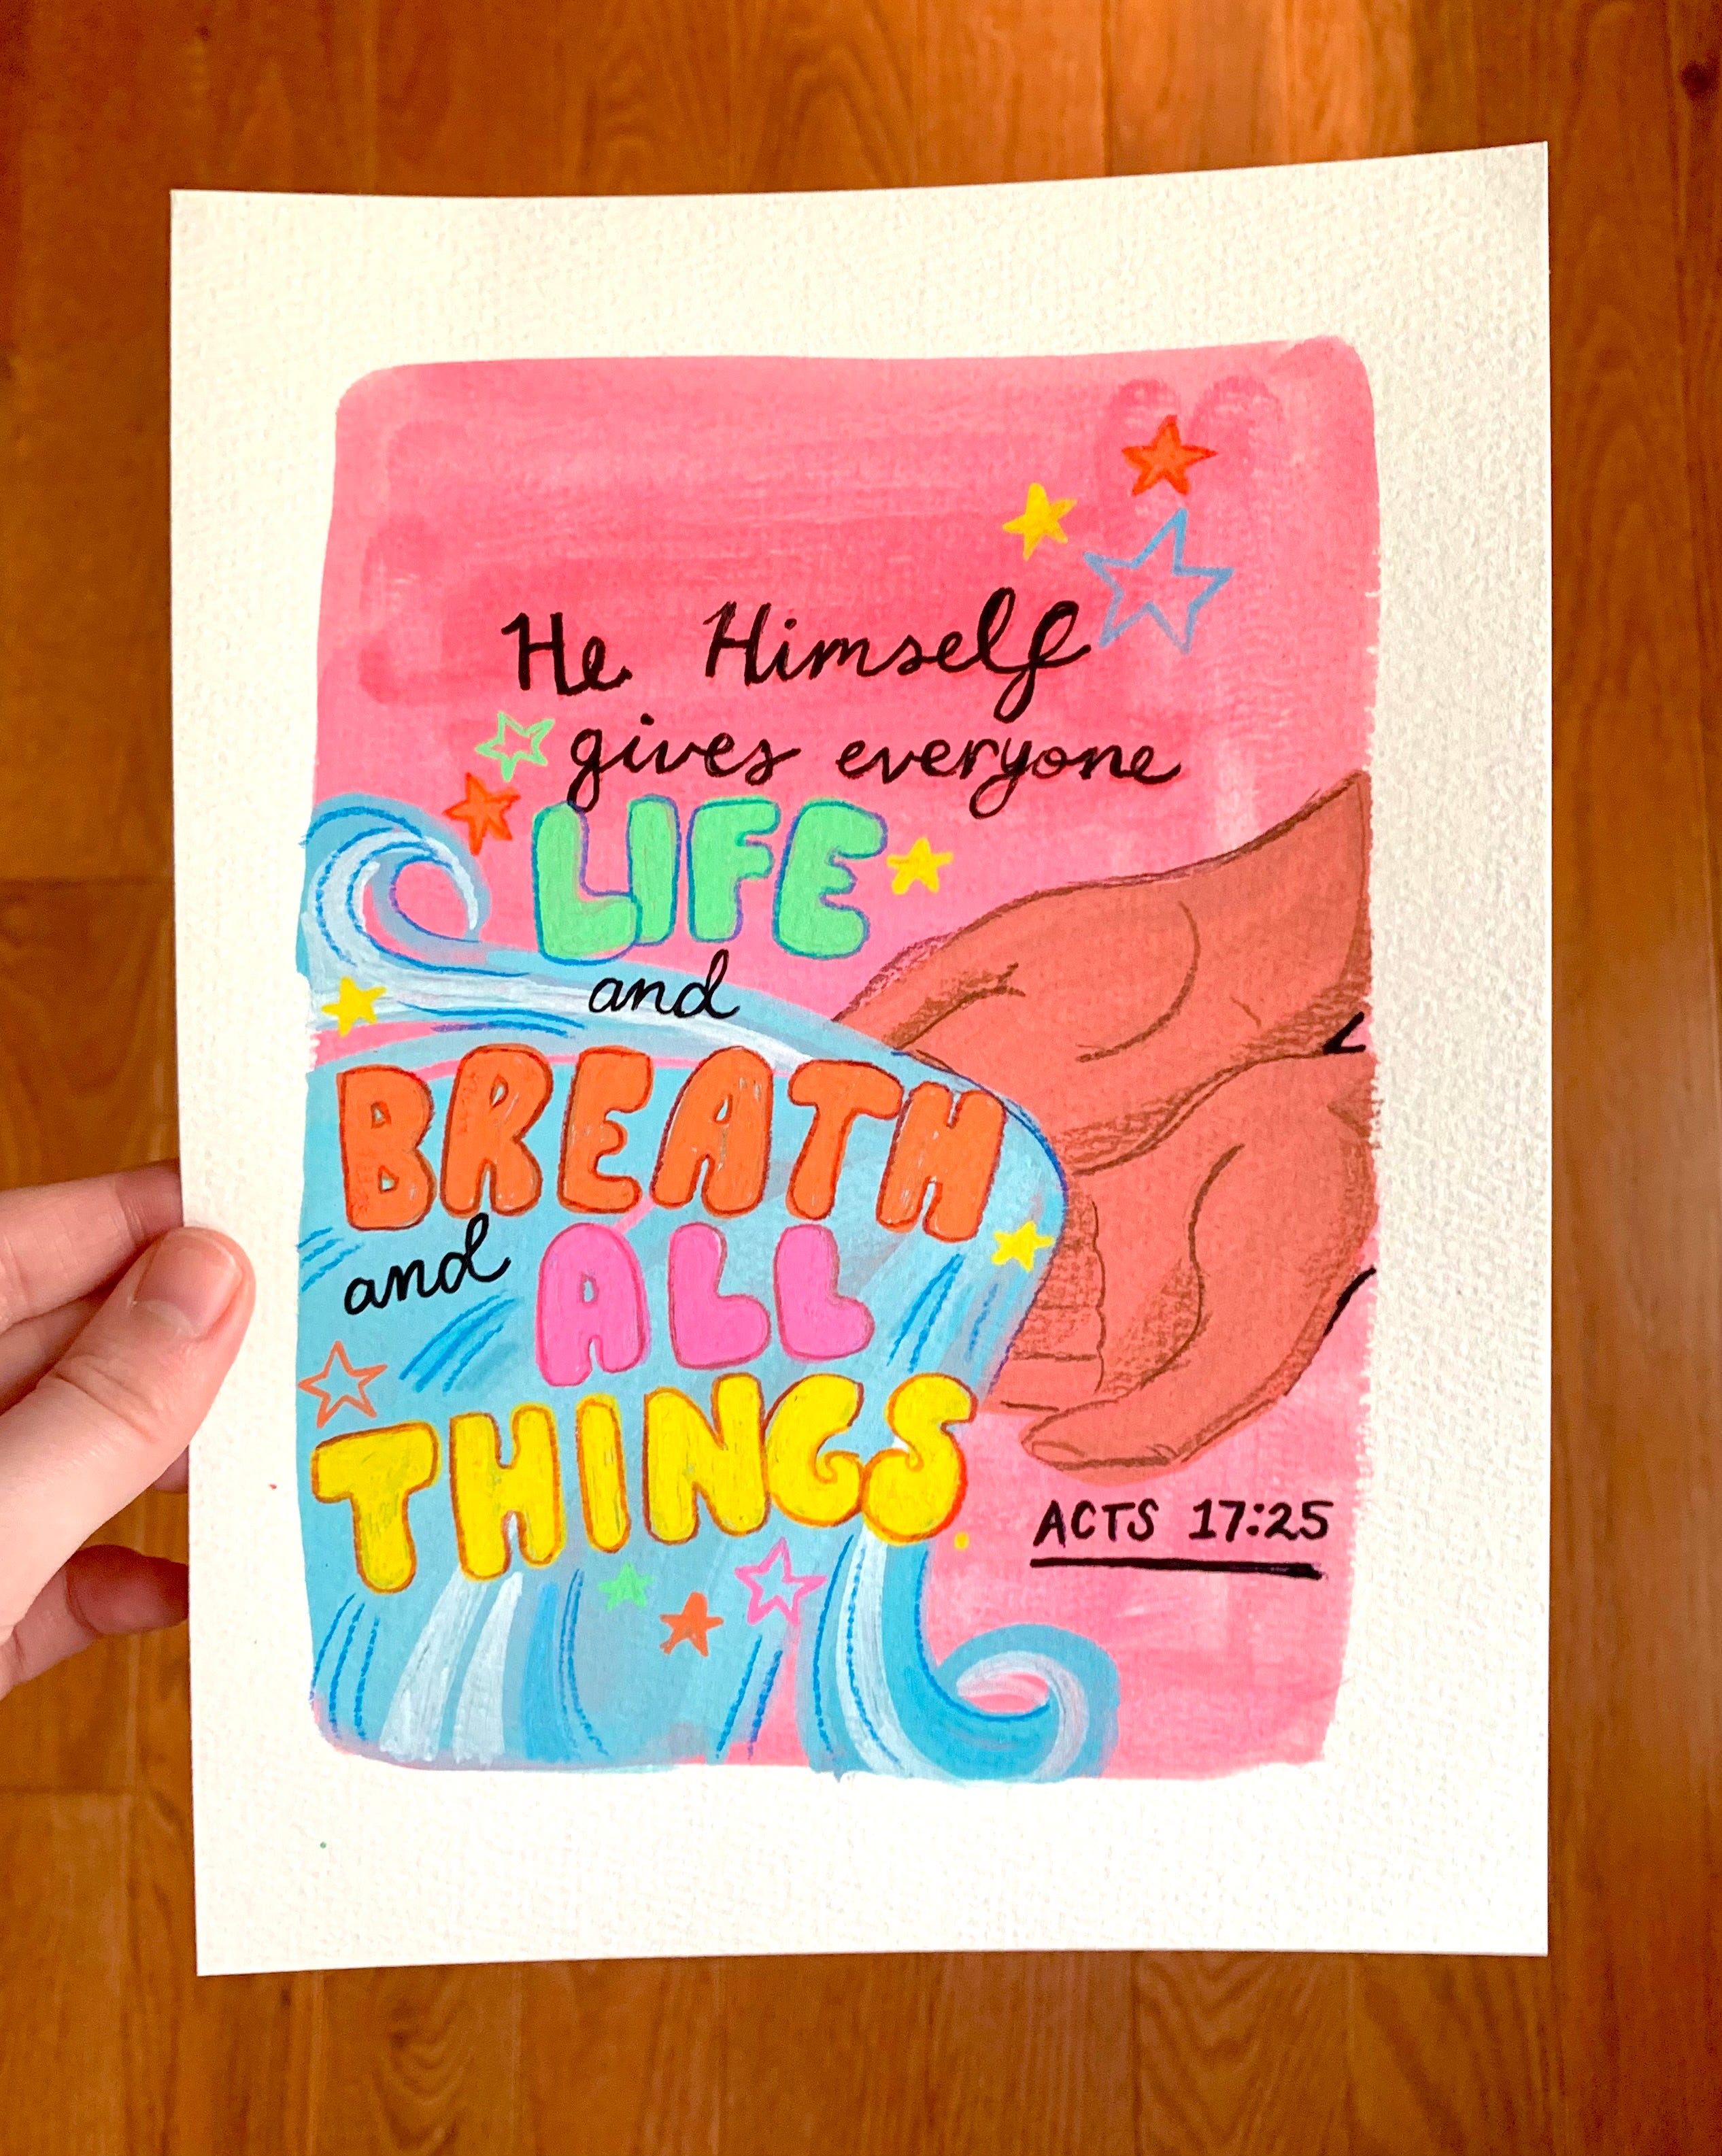 He Himself
gives everyone
LIFE
and
BREATH
and ALL
THINGS.
ACTS 17:25